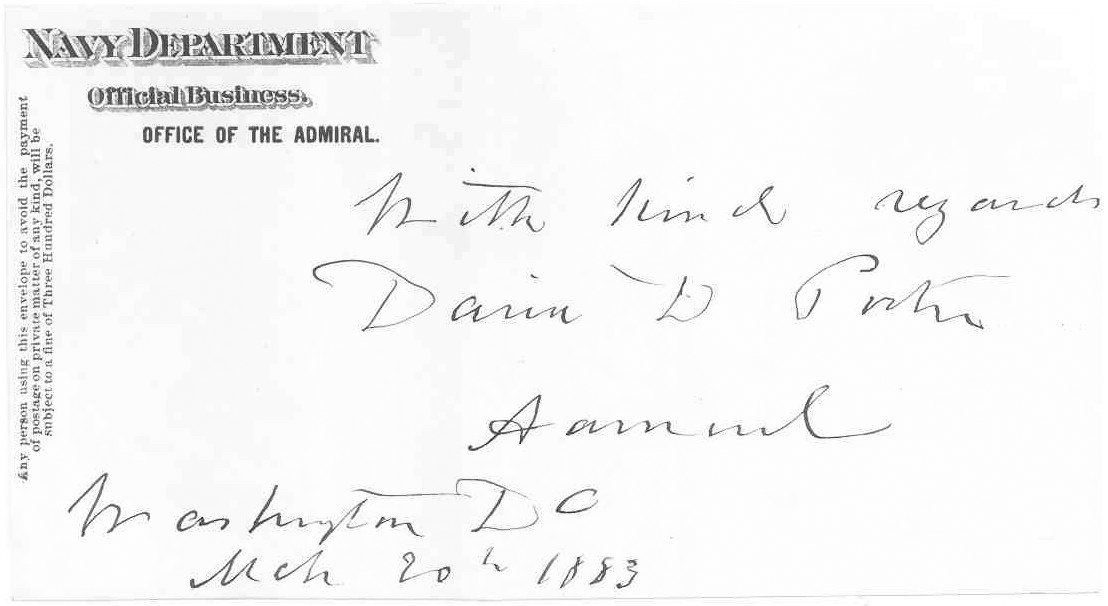 NAVY DEPARTMENT
Official Business.
OFFICE OF THE ADMIRAL.
Any person using this envelope to avoid the payment
of postage on private matter of any kind, will be
subject to a fine of Three Hundred Dollars.
With kind regards
David D Porter
Admiral
Washington DC
Mch 20th 1883